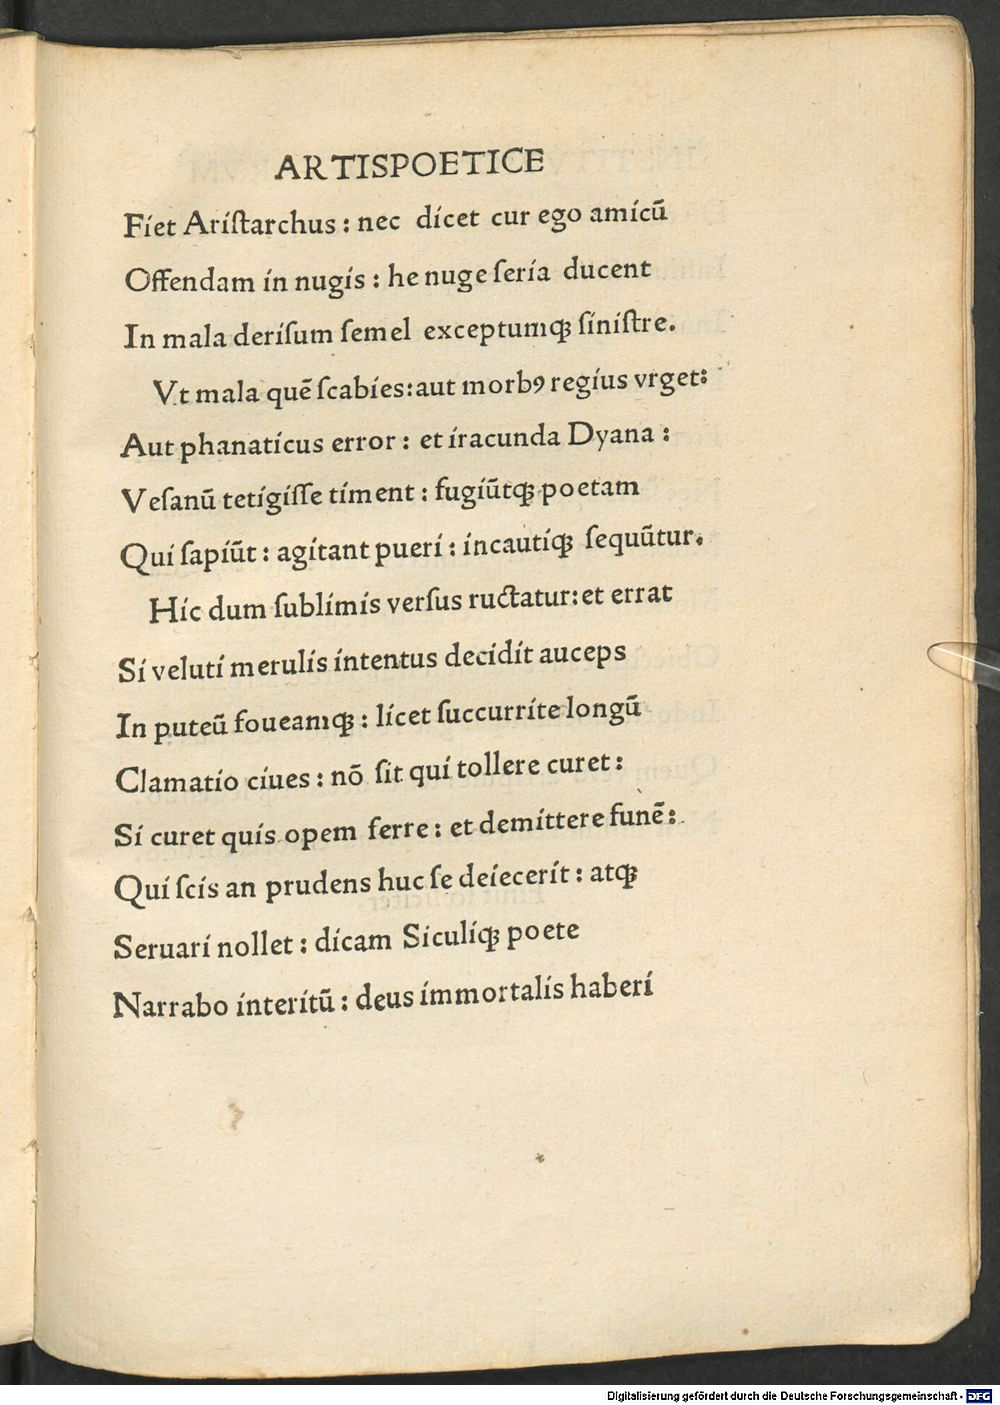 ARTISPOETICE
Fiet Ariſtarchus : nec dicet cur ego amicū
Offendam in nugis : he nuge ſeria ducent
In mala deriſum ſemel exceptumqꝫ ſiniſtre.
Vt mala quē ſcabies: aut morbꝰ regius vrget:
Aut phanaticus error : et iracunda Dyana :
Veſanū tetigiſſe timent : fugiūtqꝫ poetam
Qui ſapiūt : agitant pueri : incautiqꝫ ſequūtur.
Hic dum ſublimis verſus ructatur: et errat
Si veluti merulis intentus decidit auceps
In puteū foueamqꝫ : licet ſuccurrite longū
Clamatio ciues : nō ſit qui tollere curet :
Si curet quis opem ferre : et demittere funē :
Qui ſcis an prudens huc ſe deiecerit : atqꝫ
Seruari nollet : dicam Siculiqꝫ poete
Narrabo interitū : deus immortalis haberi
Digitalisierung gefördert durch die Deutsche Forschungsgemeinschaft - DFG